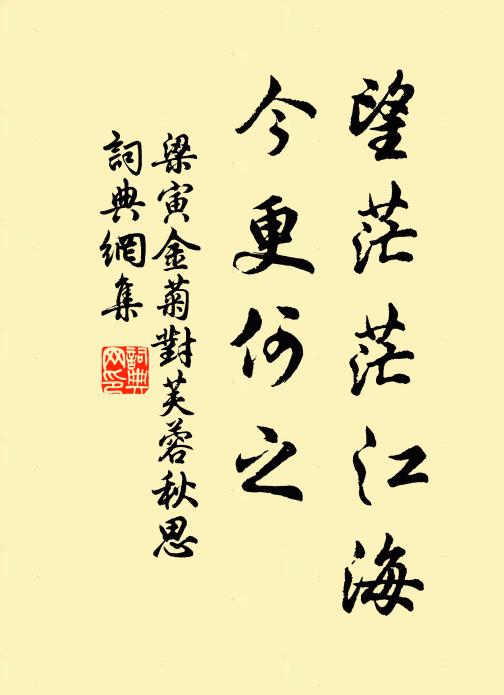 望茫茫江海
今更何之
梁寅金菊對芙蓉秋思
詞典網集
詞典網印